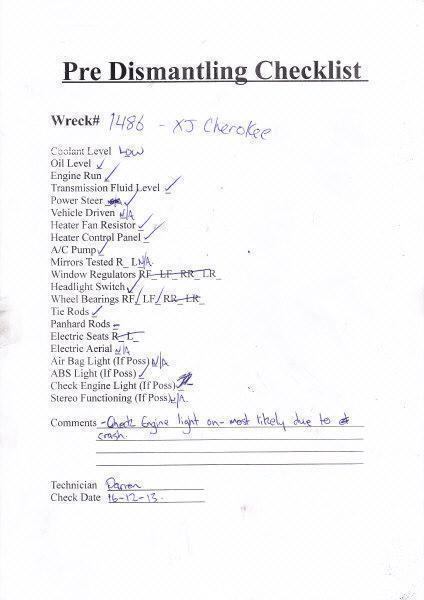 Pre Dismantling Checklist
Wreck# 1486 - XJ Cherokee
Coolant Level Low
Oil Level ✓
Engine Run ✓
Transmission Fluid Level ✓
Power Steer ✓
Vehicle Driven N/A
Heater Fan Resistor ✓
Heater Control Panel ✓
A/C Pump ✓
Mirrors Tested R_ L N/A
Window Regulators RF_ LF_ RR_ LR_
Headlight Switch ✓
Wheel Bearings RF ✓ LF ✓ RR_ LR_
Tie Rods ✓
Panhard Rods -
Electric Seats R_ L_
Electric Aerial N/A
Air Bag Light (If Poss) N/A
ABS Light (If Poss) ✓
Check Engine Light (If Poss)
Stereo Functioning (If Poss) N/A
Comments - Check Engine light on - most likely due to
crash.
Technician Darren
Check Date 16-12-13.